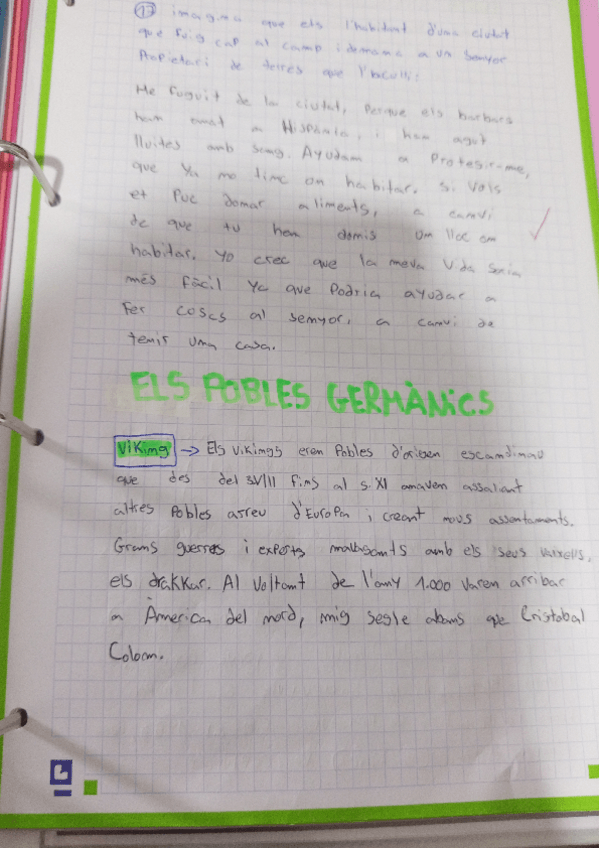 17 imagina que ets l'habitant d'una ciutat
que fuig cap al camp i demana a un senyor
Propietari de terres que l'aculli:
He Fuguit de la ciutat, Perque els barbars
han entrat a Hispània, i han agut
lluites amb sang. Ayudam a Protegir-me,
que ya no tinc on habitar. Si vols
et Puc donar aliments, a canvi
de que tu hem donis un lloc on
habitar. Yo crec que la meva Vida seria
més Fàcil Ya que Podria ayudar a
Fer coses al senyor, a canvi de
tenir una casa.
ELS POBLES GERMÀNICS
Viking → Els vikings eren Pobles d'origen escandinau
que des del s.VIII fins al s. XI anaven assaltant
altres Pobles arreu d'Europa i creant nous assentaments.
Grans guerres i experts navegants amb els seus vaixells,
els drakkar. Al Voltant de l'any 1.000 varen arribar
a Àmerica del nord, mig segle abans que Cristobal
Colom.